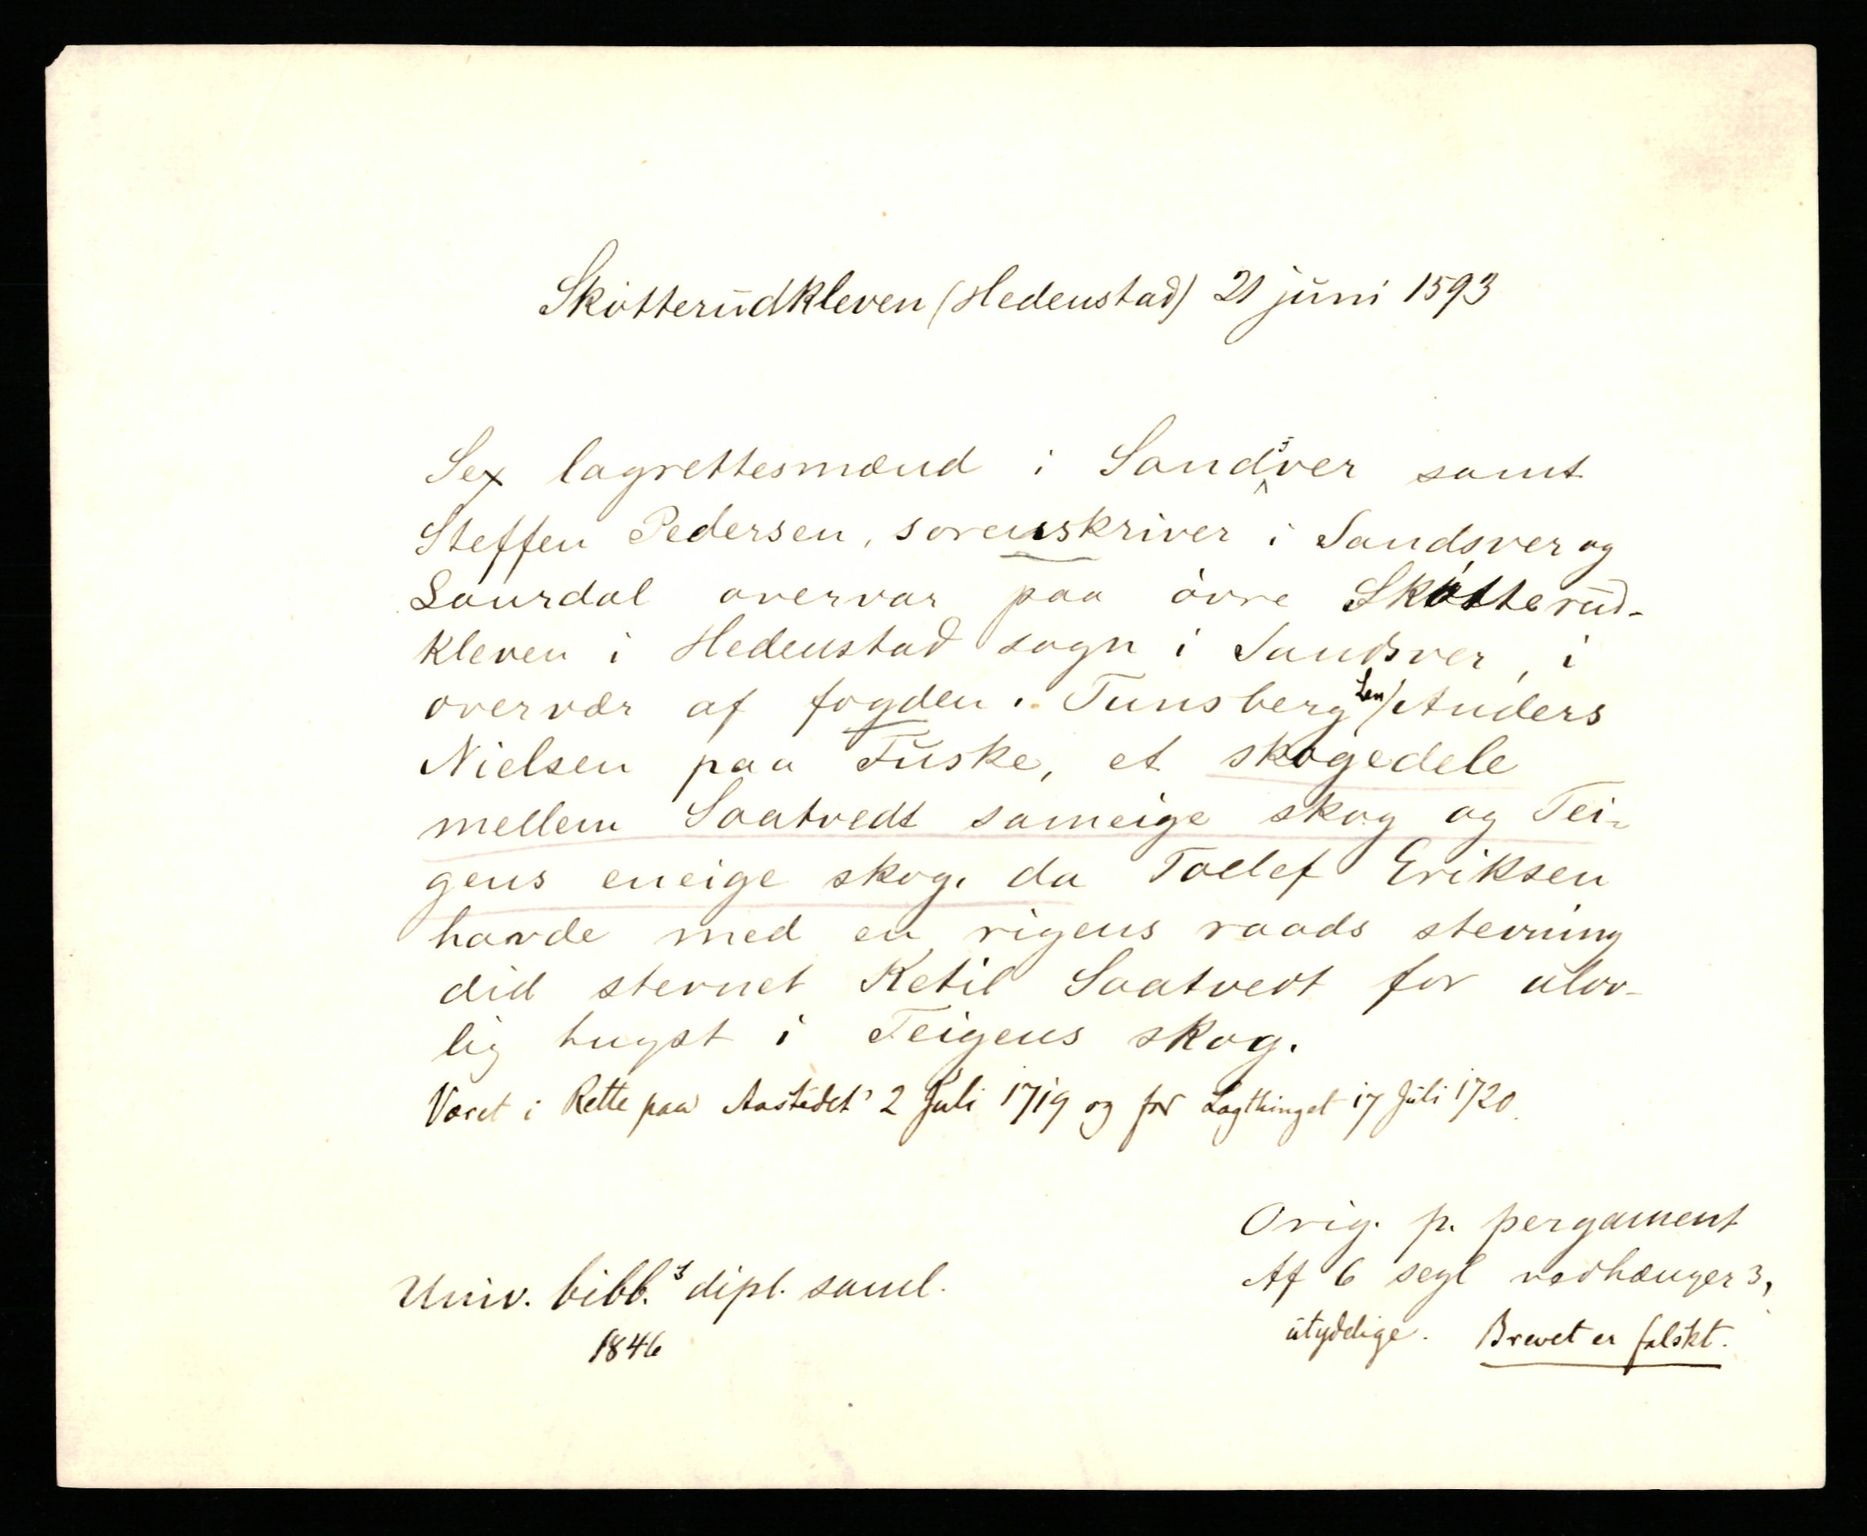 Skotterudkleven (Hedenstad) 21 juni 1593
Sex lagrettesmænd i Sandsver samt
Steffen Pedersen, sorenskriver i Sandsver og
Laurdal overvar paa övre Skotterud-
kleven i Hedenstad sogn i Sandsver, i
overvær af fogden i Tunsberg Len, Anders
Nielsen paa Fuske, et skogedele
mellem Saatvedt sameige skog og Tei-
gens eneige skog, da Tollef Eriksen
havde med en rigens raads stevning
did stevnet Ketil Saatvedt for ulov-
lig hugst i Teigens skog.
Været i Rette paa Aastedet 2 Juli 1719 og for Lagthinget 17 Juli 1720.
Orig. p. pergament
Af 6 segl vedhænger 3,
utydelige. Brevet er falskt.
Univ. bibl.s dipl. saml.
1846